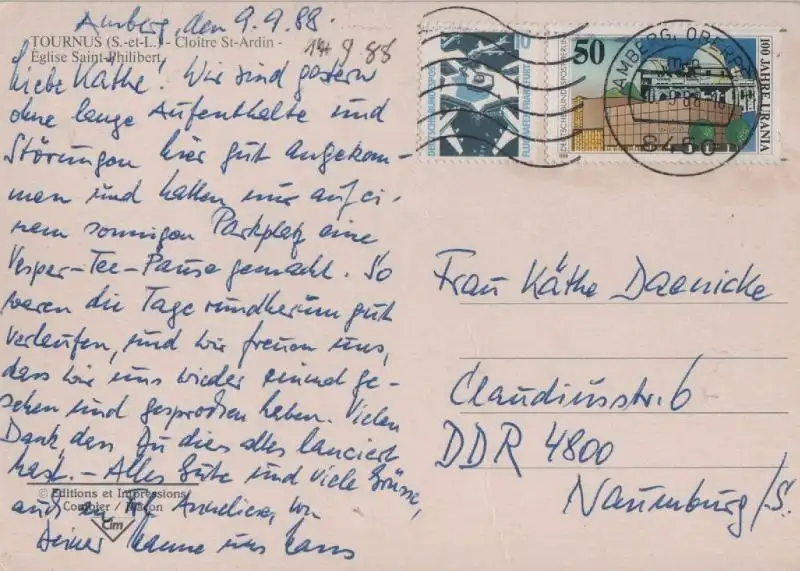 Amberg, den 9.9.88.
TOURNUS (S.-et-L.) - Cloître St-Ardin -
Église Saint-Philibert
14 9 88
Liebe Käthe! Wir sind gestern
ohne lange Aufenthalte und
Störungen hier gut angekom-
men und hatten nur auf ei-
nem sonnigen Parkplatz eine
Vesper-Tee-Pause gemacht. So
waren die Tage rundherum gut
verlaufen, und wir freuen uns,
dass wir uns wieder einmal ge-
sehen und gesprochen haben. Vielen
Dank dass Du dies alles lanciert
hast. - Alles Gute und viele Grüsse,
auch an Anneliese, von
Deiner Hanne und Hans
© Editions et Impressions
Combier / Macon
Cim
DEUTSCHE BUNDESPOST
FLUGHAFEN FRANKFURT
50
DEUTSCHE BUNDESPOST BERLIN
100 JAHRE URANIA
AMBERG, OBERPF
8450
Frau Käthe Daenicke
Claudiusstr. 6
DDR 4800
Naumburg/S.